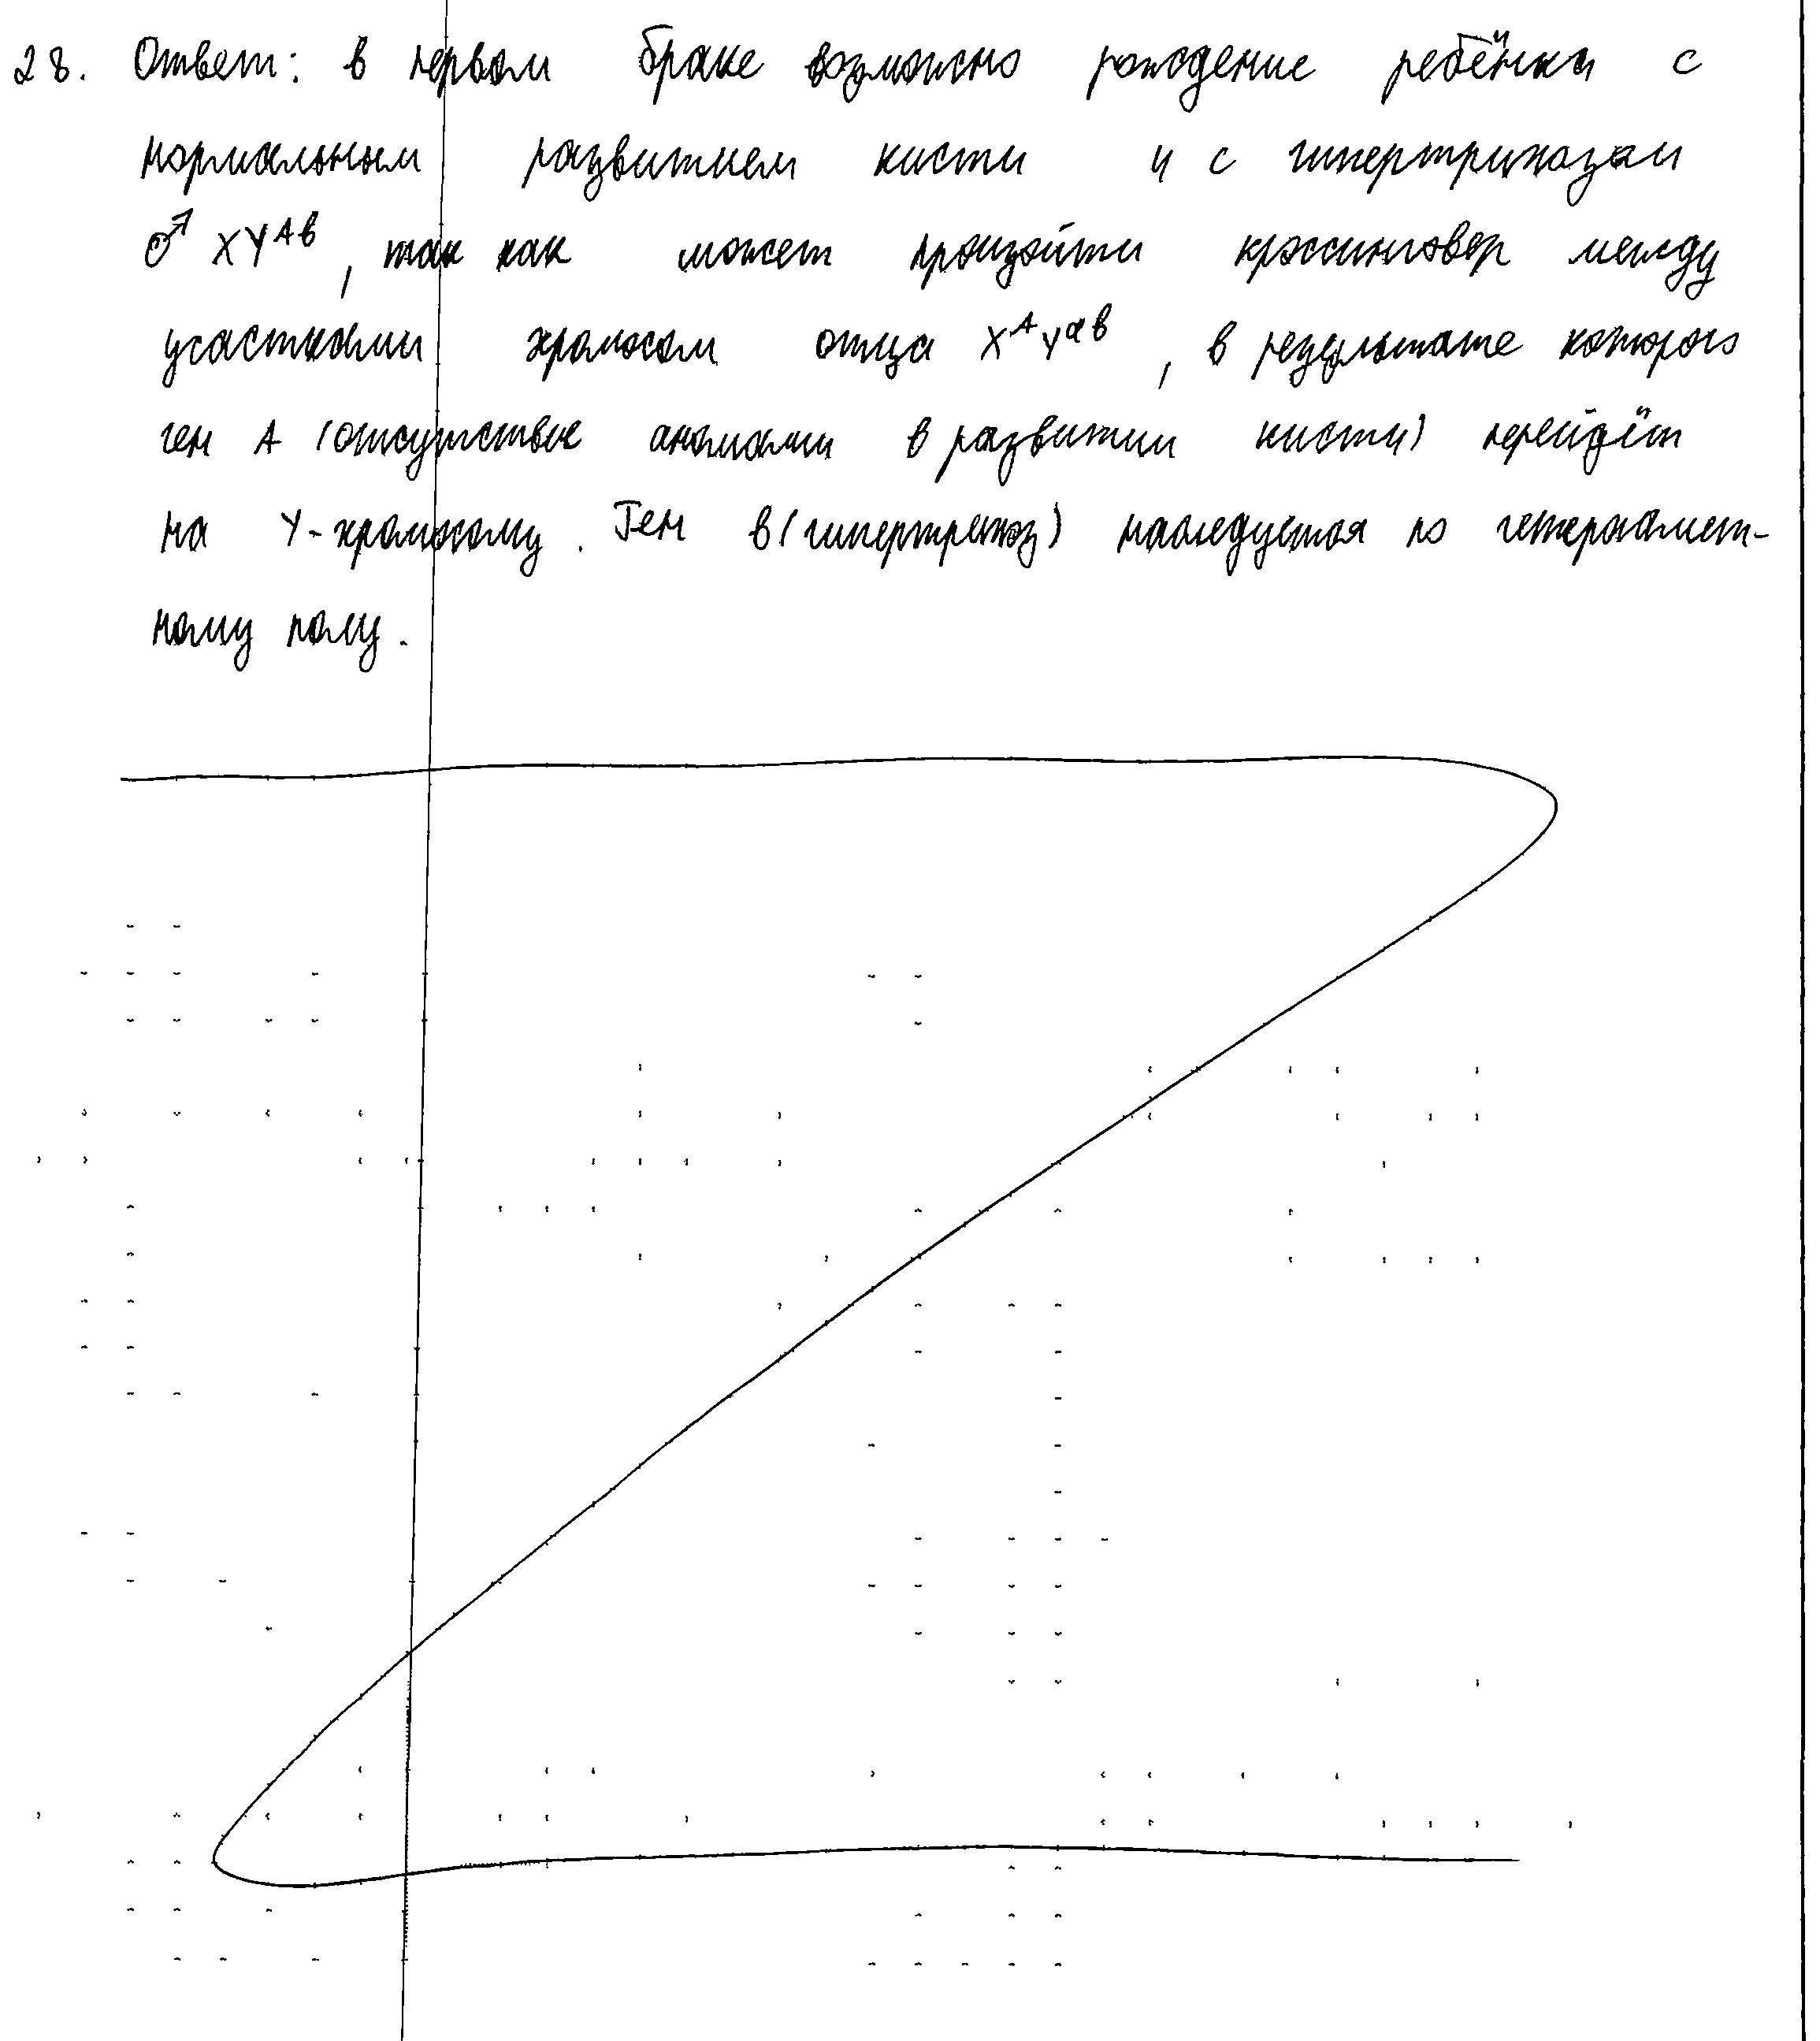 28. Ответ: в первом браке возможно рождение ребёнка с
нормальным развитием кисти и с гипертрихозом
♂ XY^Aв, так как может произойти кроссинговер между
участками хромосом отца X^A Y^ав, в результате которого
ген А (отсутствие аномалии в развитии кисти) перейдёт
на Y-хромосому. Ген в (гипертрихоз) наследуется по гетерогамет-
ному полу.